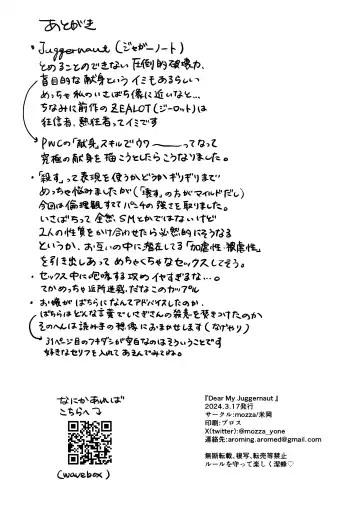 あとがき
・Juggernaut (ジャガーノート)
とめることのできない圧倒的破壊力、
盲目的な献身というイミもあるらしい
めっちゃ私のいさばち像に近いなと…
ちなみに前作のZEALOT(ジーロット)は
狂信者、熱狂者ってイミです
PWCの「献身」スキルでウワーーーってなって
究極の献身を描こうとしたらこうなりました。
・「殺す」って表現を使うかどうかギリギリまで
めっちゃ悩みましたが(「壊す」の方がマイルドだし)
今回は倫理観すててパンチの強さを取りました。
いさばちって全然SMとかではないけど
2人の性質をかけ合わせたら必然的にそうなる
というか、お互いの中に潜在してる「加虐性・被虐性」
を引き出しあってめちゃくちゃなセックスしてそう。
・セックス中に咆哮する攻めイヤすぎるな…。
てかめっちゃ近所迷惑だなこのカップル
・お嬢がばちらになんてアドバイスしたのか、
ばちらはどんな言葉でいさぎさんの殺意を焚きつけたのか
そのへんは読み手の想像におまかせします(なげやり)
31ページ目のフキダシが空白なのはそういうことです
好きなセリフを入れてあそんでみてね。
なにかあれば
こちらへ
(wavebox)
『Dear My Juggernaut 』
2024.3.17発行
サークル:mozza/米岡
印刷:プロス
X(twitter):@mozza_yone
連絡先:aroming.aromed@gmail.com
無断転載、複写、転売等禁止
ルールを守って楽しく潔締♡